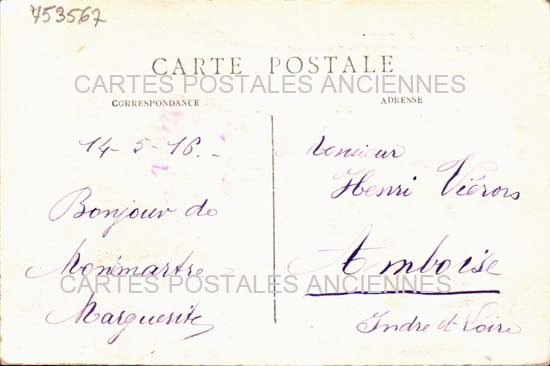 453567
CARTE POSTALE
CARTES POSTALES ANCIENNES
CORRESPONDANCE
ADRESSE
14-5-16.-
Bonjour de
Montmartre
Marguerite
Monsieur
Henri Viérois
Amboise
Indre et Loire
CARTES POSTALES ANCIENNES